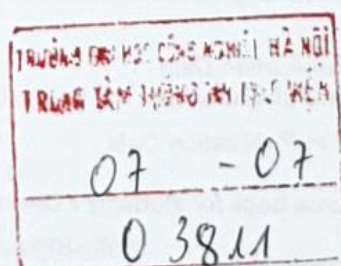 TRƯỜNG ĐẠI HỌC CÔNG NGHIỆP HÀ NỘI
TRUNG TÂM THÔNG TIN THƯ VIỆN
07 - 07
03811